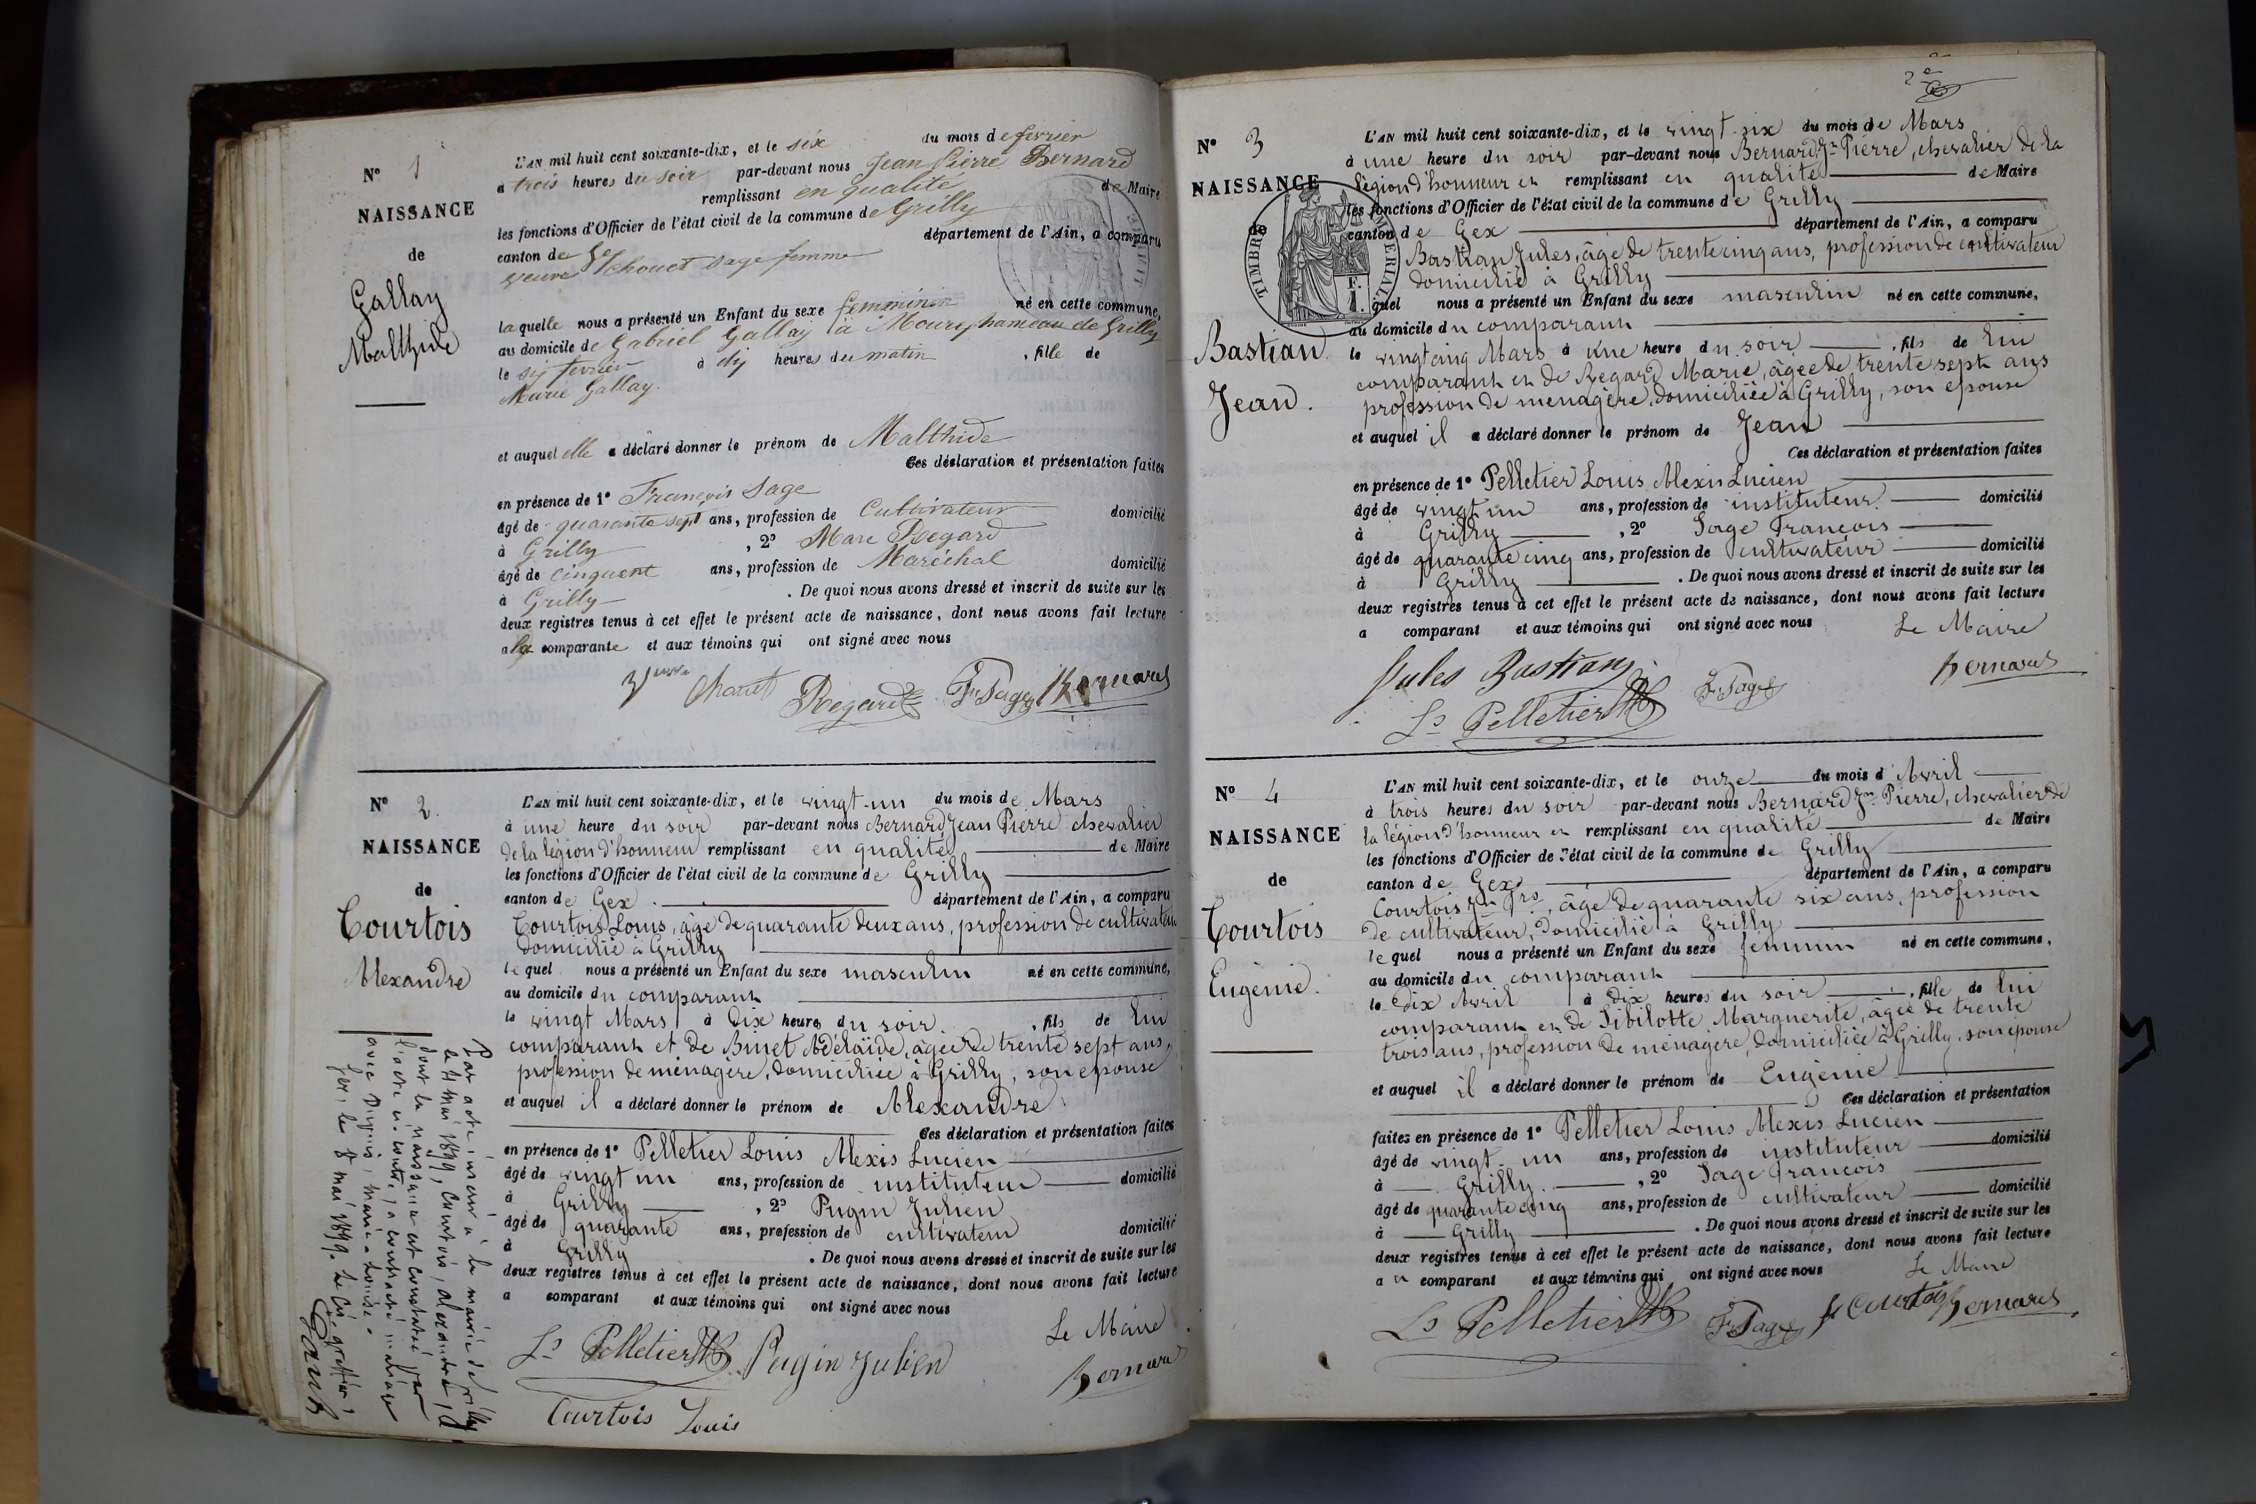 N° 1
NAISSANCE
de
Gallay
Malthide
L'AN mil huit cent soixante-dix, et le six du mois de fevrier
a trois heures du soir par-devant nous Jean Pierre Bernard
remplissant en qualité de Maire
les fonctions d'Officier de l'état civil de la commune de Grilly
canton de Gex département de l'Ain, a comparu
veuve Chouet sage femme
laquelle nous a présenté un Enfant du sexe femminin né en cette commune,
au domicile de Gabriel Gallay à Moury hameau de Grilly
le six fevrier à dix heures du matin, fille de
Marie Gallay.
et auquel elle a déclaré donner le prénom de Malthide
Ces déclaration et présentation faites
en présence de 1° François Sage
âgé de quarante sept ans, profession de Cultivateur domicilié
à Grilly, 2° Marc Regard
âgé de cinquent ans, profession de Maréchal domicilié
à Grilly. De quoi nous avons dressé et inscrit de suite sur les
deux registres tenus à cet effet le présent acte de naissance, dont nous avons fait lecture
a la comparante et aux témoins qui ont signé avec nous
Chouet Regard Fs Sage Bernard
N° 2.
NAISSANCE
de
Courtois
Alexandre
L'AN mil huit cent soixante-dix, et le vingt-un du mois de Mars
à une heure du soir par-devant nous Bernard Jean Pierre chevalier
de la légion d'honneur remplissant en qualité de Maire
les fonctions d'Officier de l'état civil de la commune de Grilly
canton de Gex département de l'Ain, a comparu
Courtois Louis, âgé de quarante deux ans, profession de cultivateur
domicilié à Grilly
lequel nous a présenté un Enfant du sexe masculin né en cette commune,
au domicile du comparant
le vingt Mars à dix heures du soir, fils de lui
comparant et de Binet Adélaïde, âgée de trente sept ans,
profession de ménagère, domiciliée à Grilly, son épouse
et auquel il a déclaré donner le prénom de Alexandre
Ces déclaration et présentation faites
en présence de 1° Pelletier Louis Alexis Lucien
âgé de vingt un ans, profession de instituteur domicilié
à Grilly, 2° Pugin Julien
âgé de quarante ans, profession de cultivateur domicilié
à Grilly. De quoi nous avons dressé et inscrit de suite sur les
deux registres tenus à cet effet le présent acte de naissance, dont nous avons fait lecture
a comparant et aux témoins qui ont signé avec nous
Le Maire
Ls Pelletier Pugin Julien Bernard
Courtois Louis
Par acte inscrit à la mairie de Grilly
le 4 mai 1899, Courtois, Alexandre,
dont la naissance est constatée par
l'acte ci-contre, a contracté mariage
avec Marie-Louise.
Gex, le 8 mai 1899. Le Cis greffier,
2e
N° 3
NAISSANCE
de
Bastian
Jean.
TIMBRE IMPERIAL
L'AN mil huit cent soixante-dix, et le vingt-six du mois de Mars
à une heure du soir par-devant nous Bernard Jn Pierre, chevalier de la
légion d'honneur et remplissant en qualité de Maire
les fonctions d'Officier de l'état civil de la commune de Grilly
canton de Gex département de l'Ain, a comparu
Bastian Jules, âgé de trente cinq ans, profession de cultivateur
domicilié à Grilly
lequel nous a présenté un Enfant du sexe masculin né en cette commune,
au domicile du comparant
le vingt cinq Mars à une heure du soir, fils de lui
comparant et de Regard Marie, âgée de trente sept ans
profession de ménagère, domiciliée à Grilly, son épouse
et auquel il a déclaré donner le prénom de Jean
Ces déclaration et présentation faites
en présence de 1° Pelletier Louis Alexis Lucien
âgé de vingt un ans, profession de instituteur domicilié
à Grilly, 2° Sage François
âgé de quarante cinq ans, profession de cultivateur domicilié
à Grilly. De quoi nous avons dressé et inscrit de suite sur les
deux registres tenus à cet effet le présent acte de naissance, dont nous avons fait lecture
a comparant et aux témoins qui ont signé avec nous
Le Maire
Jules Bastian Fs Sage Bernard
Ls Pelletier
N° 4
NAISSANCE
de
Courtois
Eugénie.
L'AN mil huit cent soixante-dix, et le onze du mois d'Avril
à trois heures du soir par-devant nous Bernard Jn Pierre, chevalier de
la légion d'honneur et remplissant en qualité de Maire
les fonctions d'Officier de l'état civil de la commune de Grilly
canton de Gex département de l'Ain, a comparu
Courtois Jn Frs, âgé de quarante six ans, profession
de cultivateur, domicilié à Grilly
lequel nous a présenté un Enfant du sexe feminin né en cette commune,
au domicile du comparant
le dix Avril à dix heures du soir, fille de lui
comparant et de Sibilotte Marguerite, âgée de trente
trois ans, profession de ménagère, domiciliée à Grilly, son épouse
et auquel il a déclaré donner le prénom de Eugénie
Ces déclaration et présentation
faites en présence de 1° Pelletier Louis Alexis Lucien
âgé de vingt-un ans, profession de instituteur domicilié
à Grilly, 2° Sage François
âgé de quarante cinq ans, profession de cultivateur domicilié
à Grilly. De quoi nous avons dressé et inscrit de suite sur les
deux registres tenus à cet effet le présent acte de naissance, dont nous avons fait lecture
au comparant et aux témoins qui ont signé avec nous
Le Maire
Ls Pelletier Fs Sage Courtois Bernard